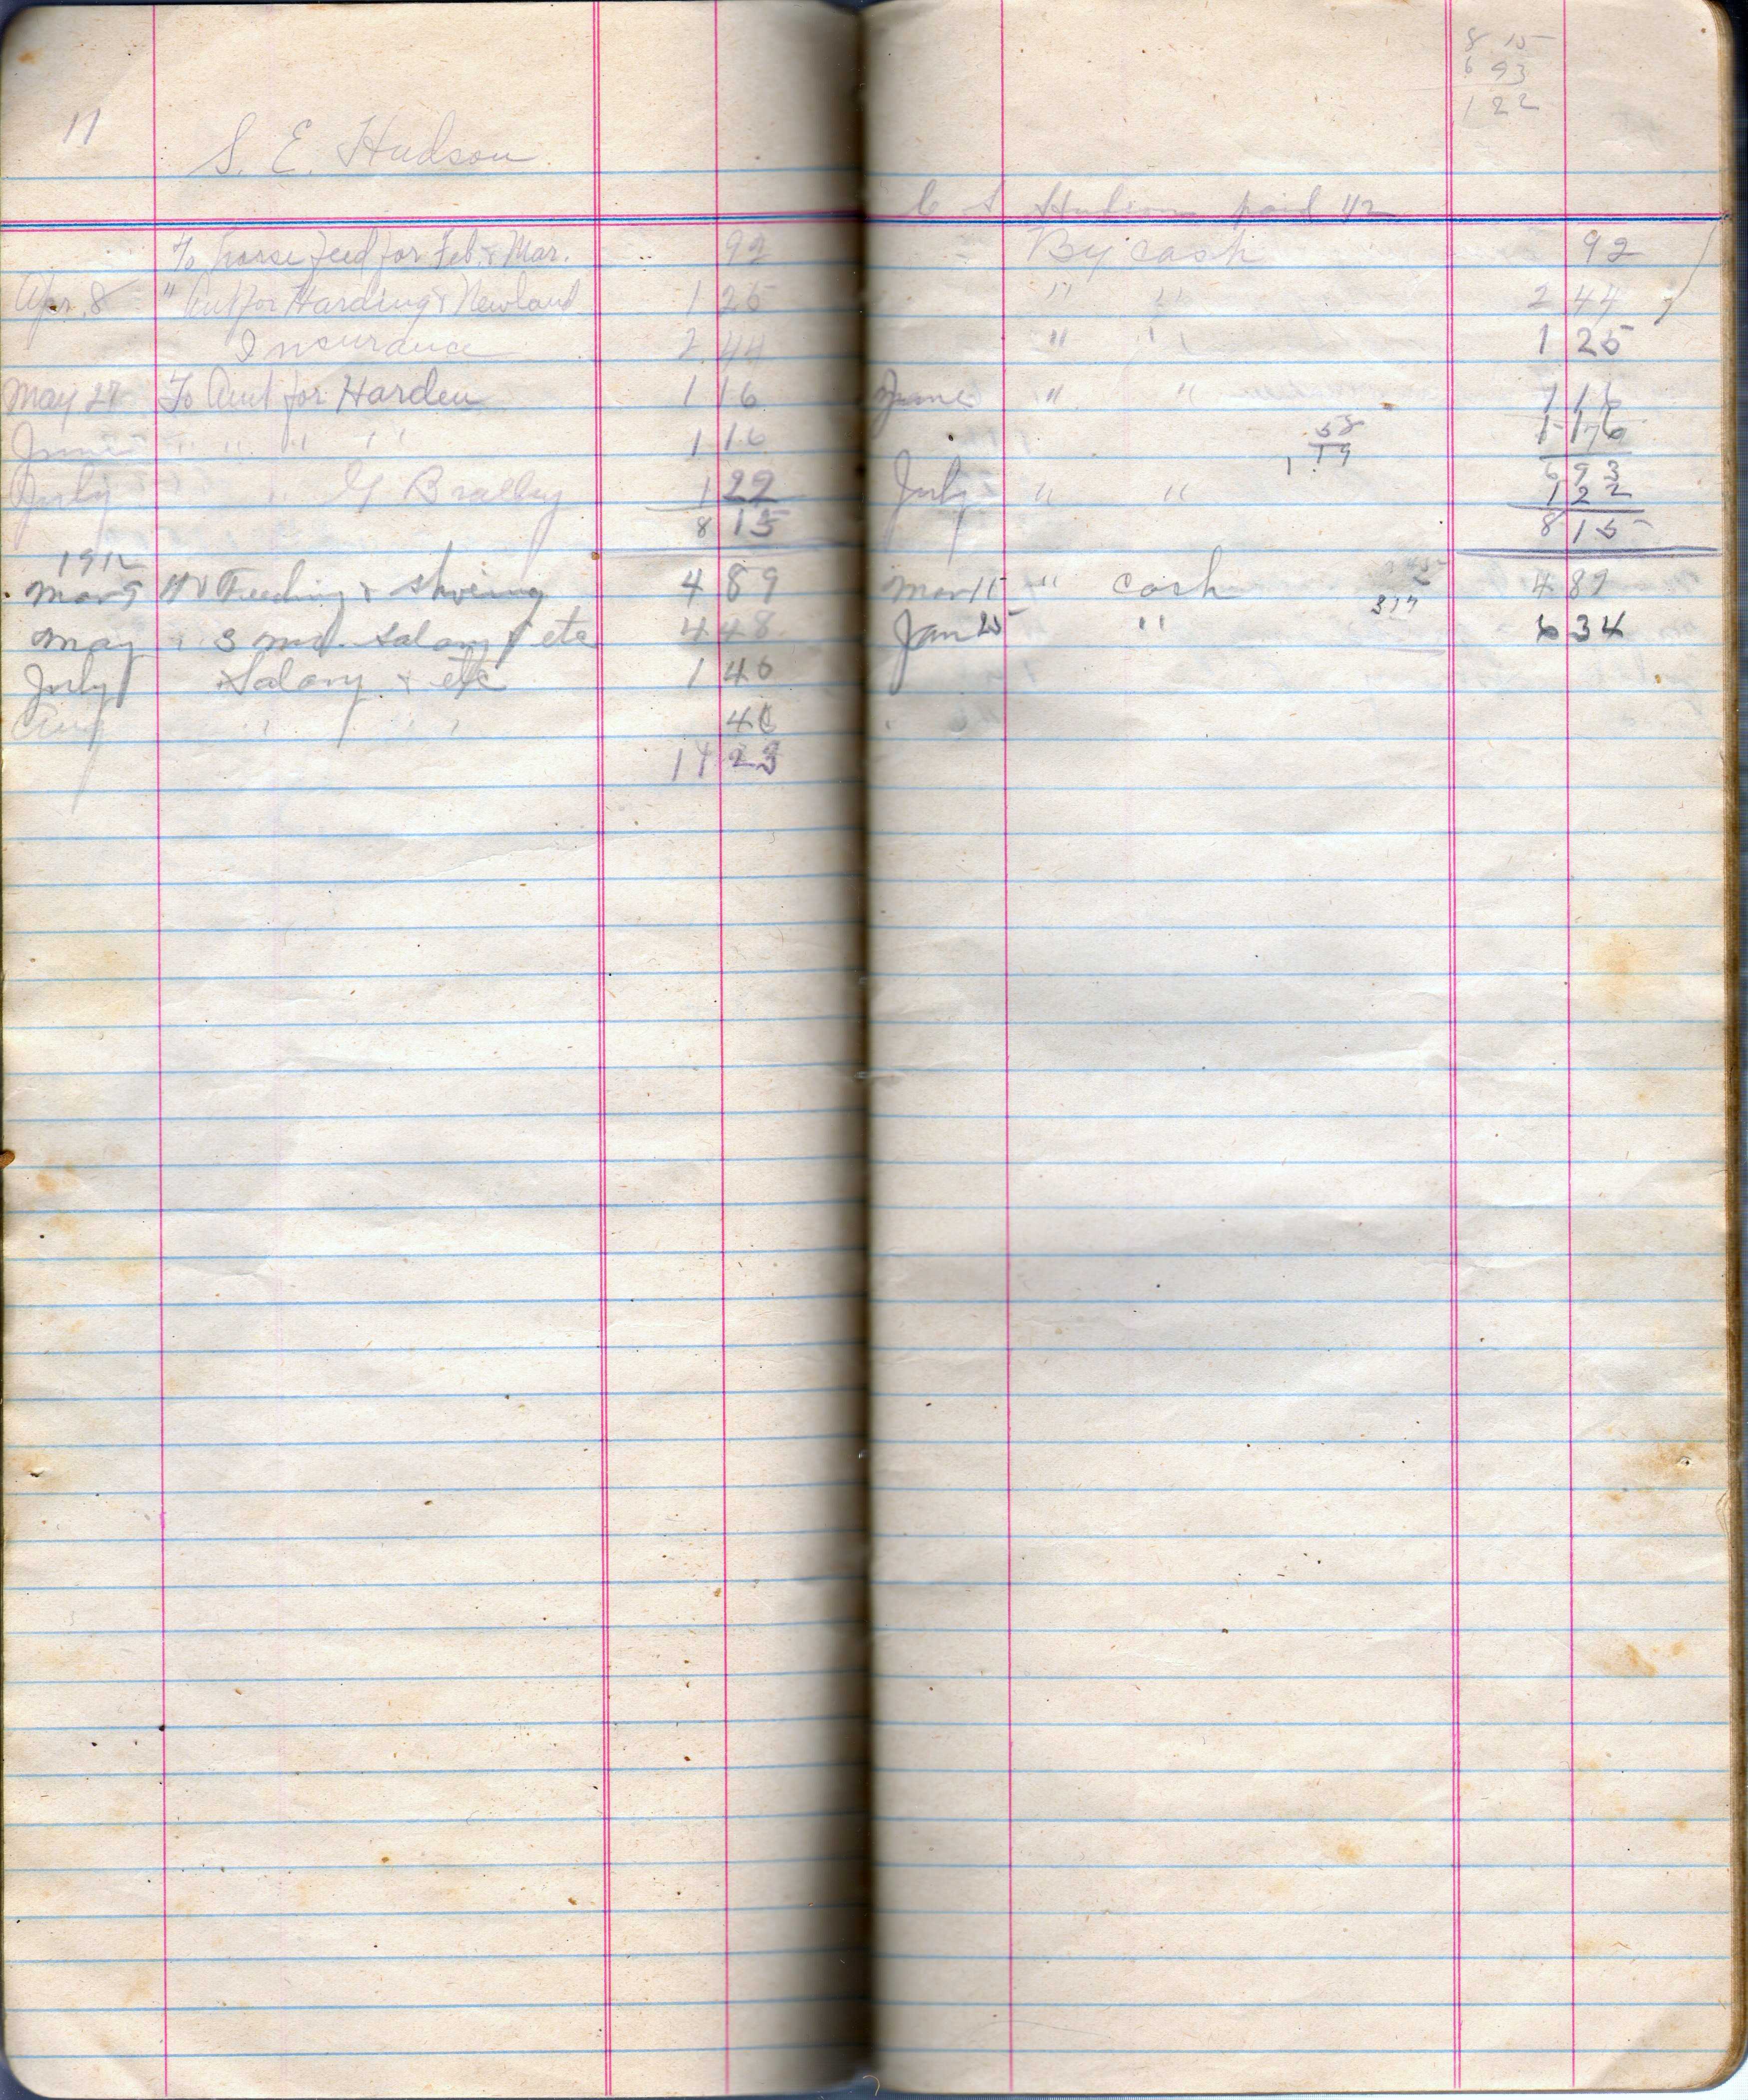 11
S. E. Hudson
To horse feed for Feb. & Mar. 92
Apr. 8 " Amt for Harding & Newland 1 25
Insurance 2 44
May 27 To Amt for Harden 1 16
June " " " " 1 16
July " G Bralley 1 22
8 15
1912
Mar 9 Feeding & shoeing 4 89
May " 3 mo. Salary & etc 4 48
July Salary & etc 1 46
Aug " " " 40
8 15
6 93
1 22
S Hudson paid 1/2
By cash 92
" " 2 44
" " 1 25
June " " 1 16
1 16
58
1.19
6 93
July " " 1 22
8 15
Mar 11 " cash 4 89
317
Jan 25 " 6 34